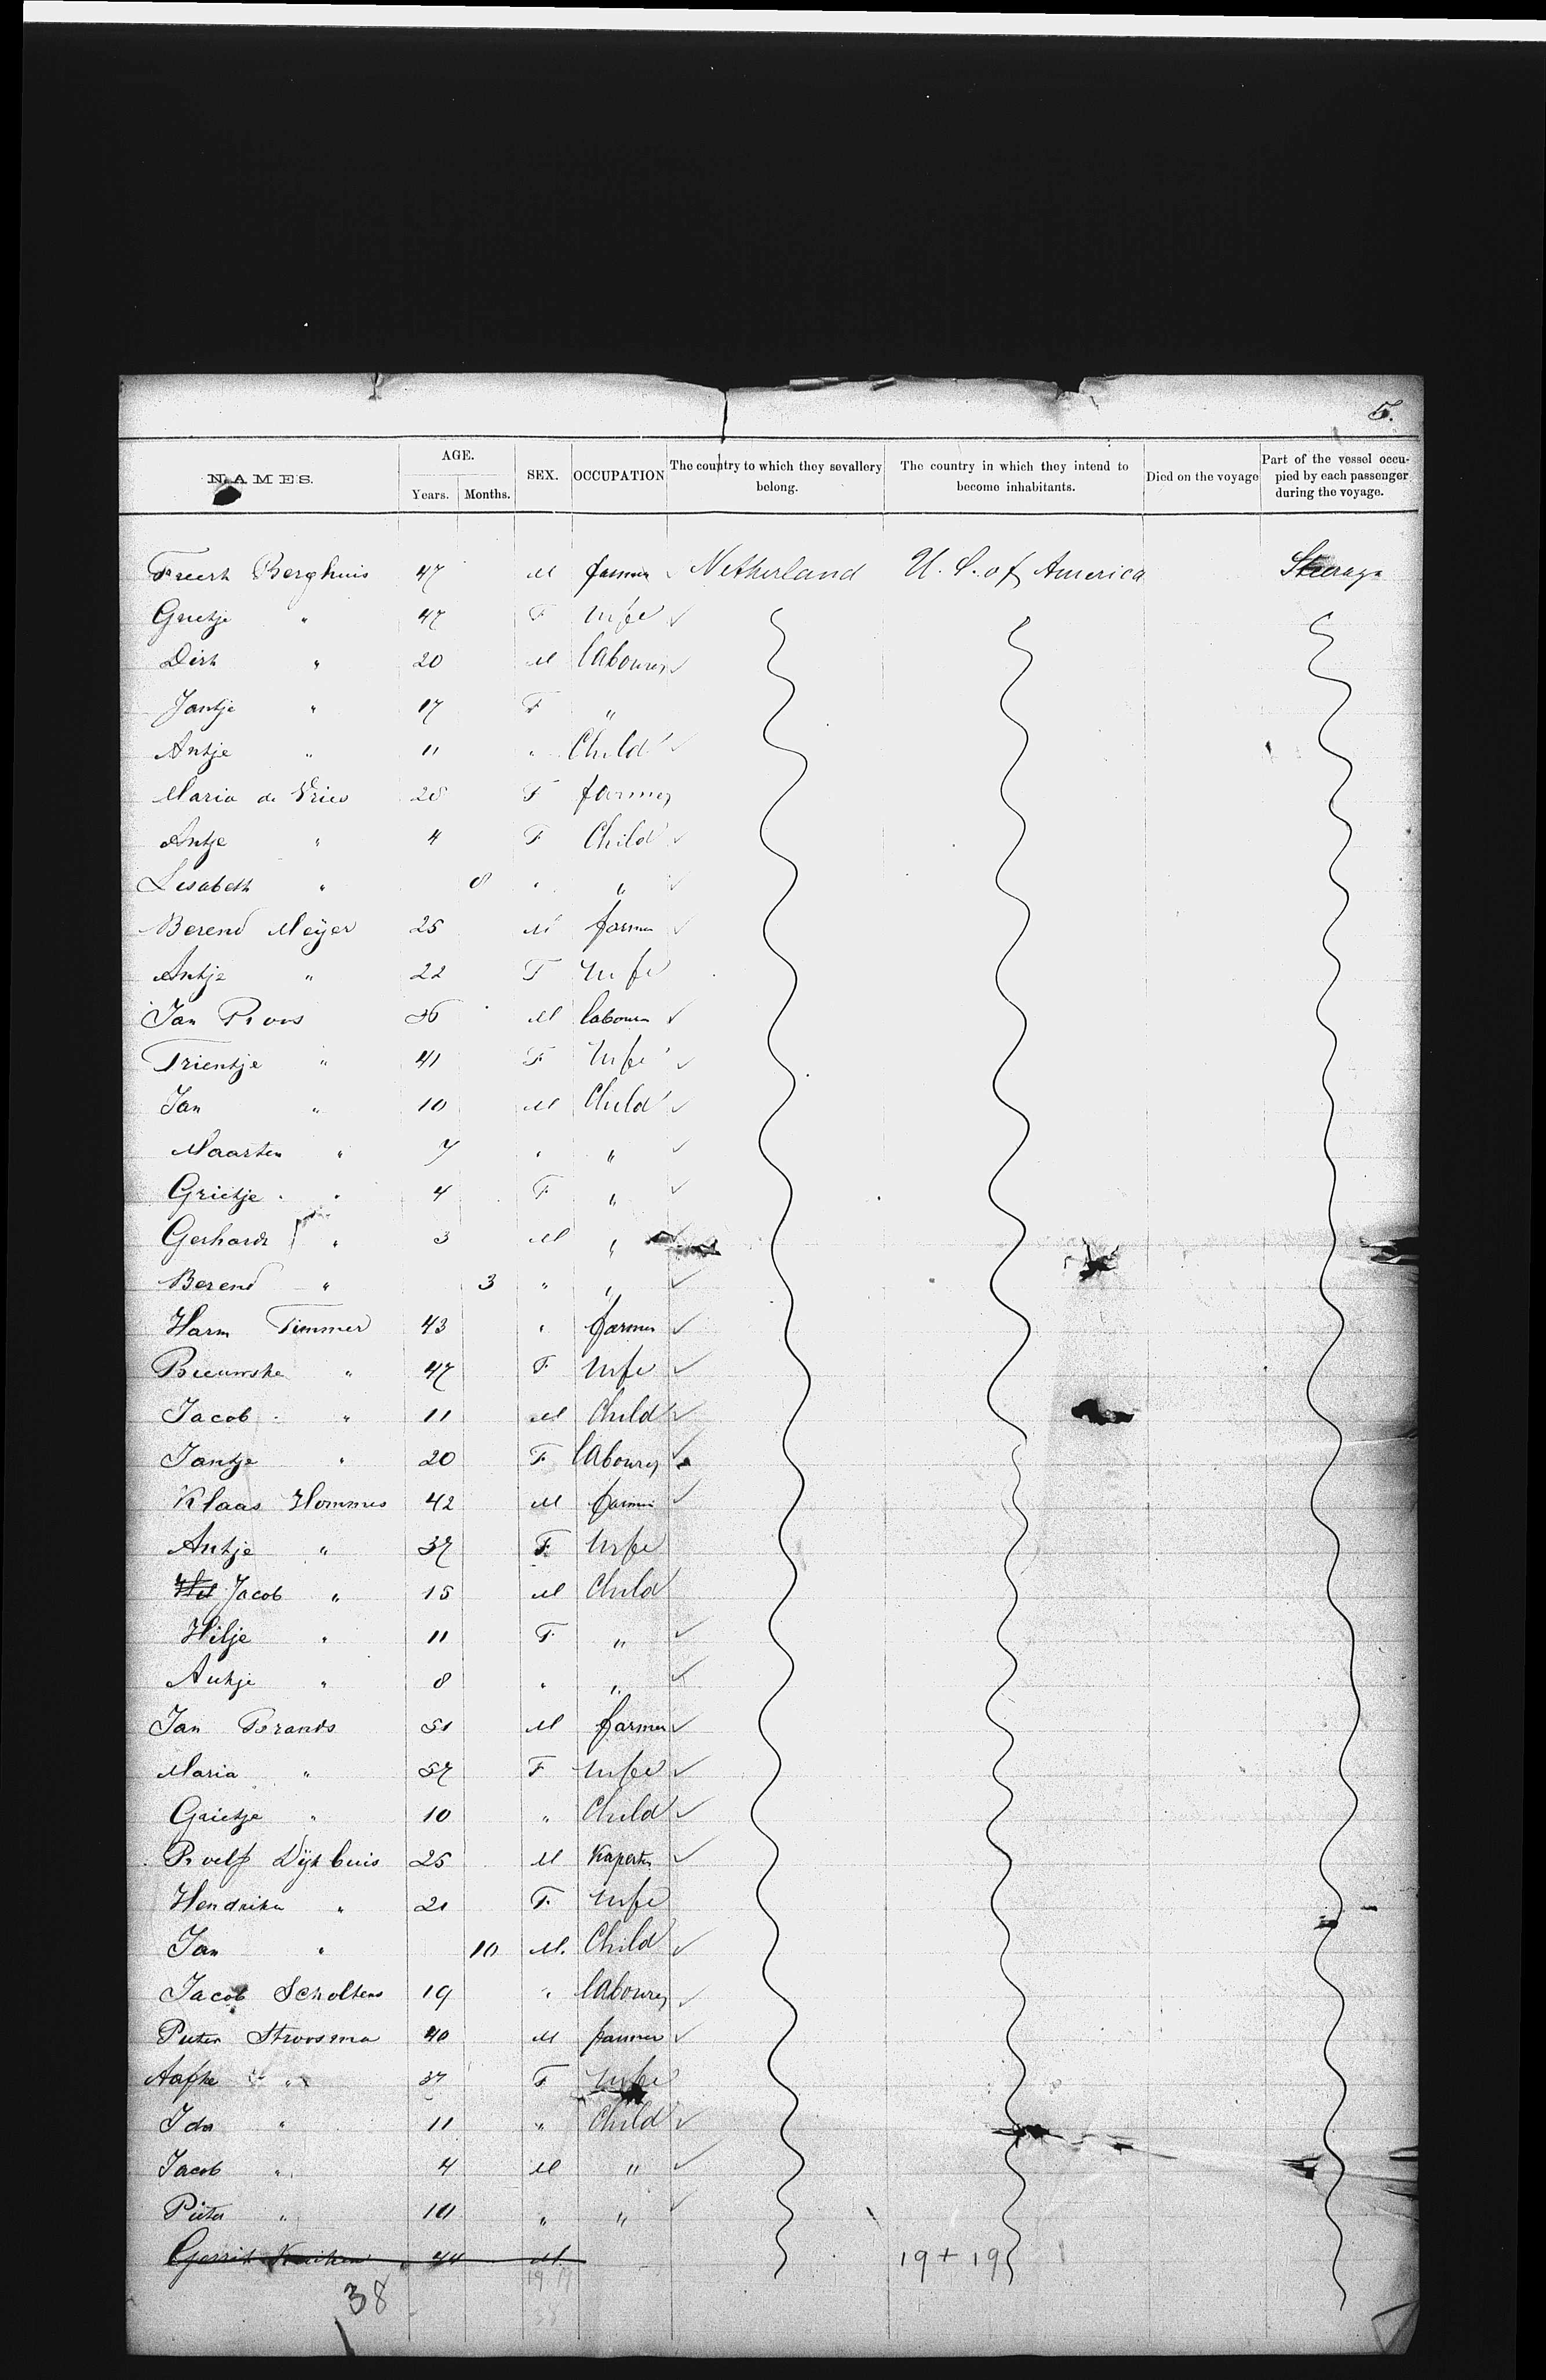 5.
NAMES. AGE. Years. Months. SEX. OCCUPATION The country to which they sevallery belong. The country in which they intend to become inhabitants. Died on the voyage Part of the vessel occupied by each passenger during the voyage.
Freerk Berghuis 47 M farmer Netherland U. S. of America Steerage
Grietje " 47 F wife
Dirk " 20 M labourer
Jantje " 17 F "
Antje " 11 " Child
Maria de Vries 28 F farmer
Antje " 4 F Child
Lisabeth " 8 " "
Berend Meijer 25 M farmer
Antje " 22 F wife
Jan Roos 36 M labourer
Trientje " 41 F wife
Jan " 10 M Child
Maarten " 7 " "
Grietje " 4 F "
Gerhardt " 3 M "
Berend " 3 " "
Harm Timmer 43 " farmer
47 F wife
Jacob " 11 M Child
Jantje " 20 F labourer
Klaas Hommes 42 M farmer
Antje " 37 F wife
Hil Jacob " 15 M Child
Hilje " 11 F "
Aukje " 8 " "
Jan Brands 51 M farmer
Maria " 57 F wife
Grietje " 10 " Child
Roelf Dijkhuis 25 M
Hendrika " 21 F wife
Jan " 10 M. Child
Jacob Scholtens 19 " labourer
Pieter Stroosma 40 M farmer
Aafke " 37 F wife
Ida " 11 " Child
Jacob " 4 M "
Pieter " 10 " "
Gerrit 44 M.
19 + 19
19 19
38
38